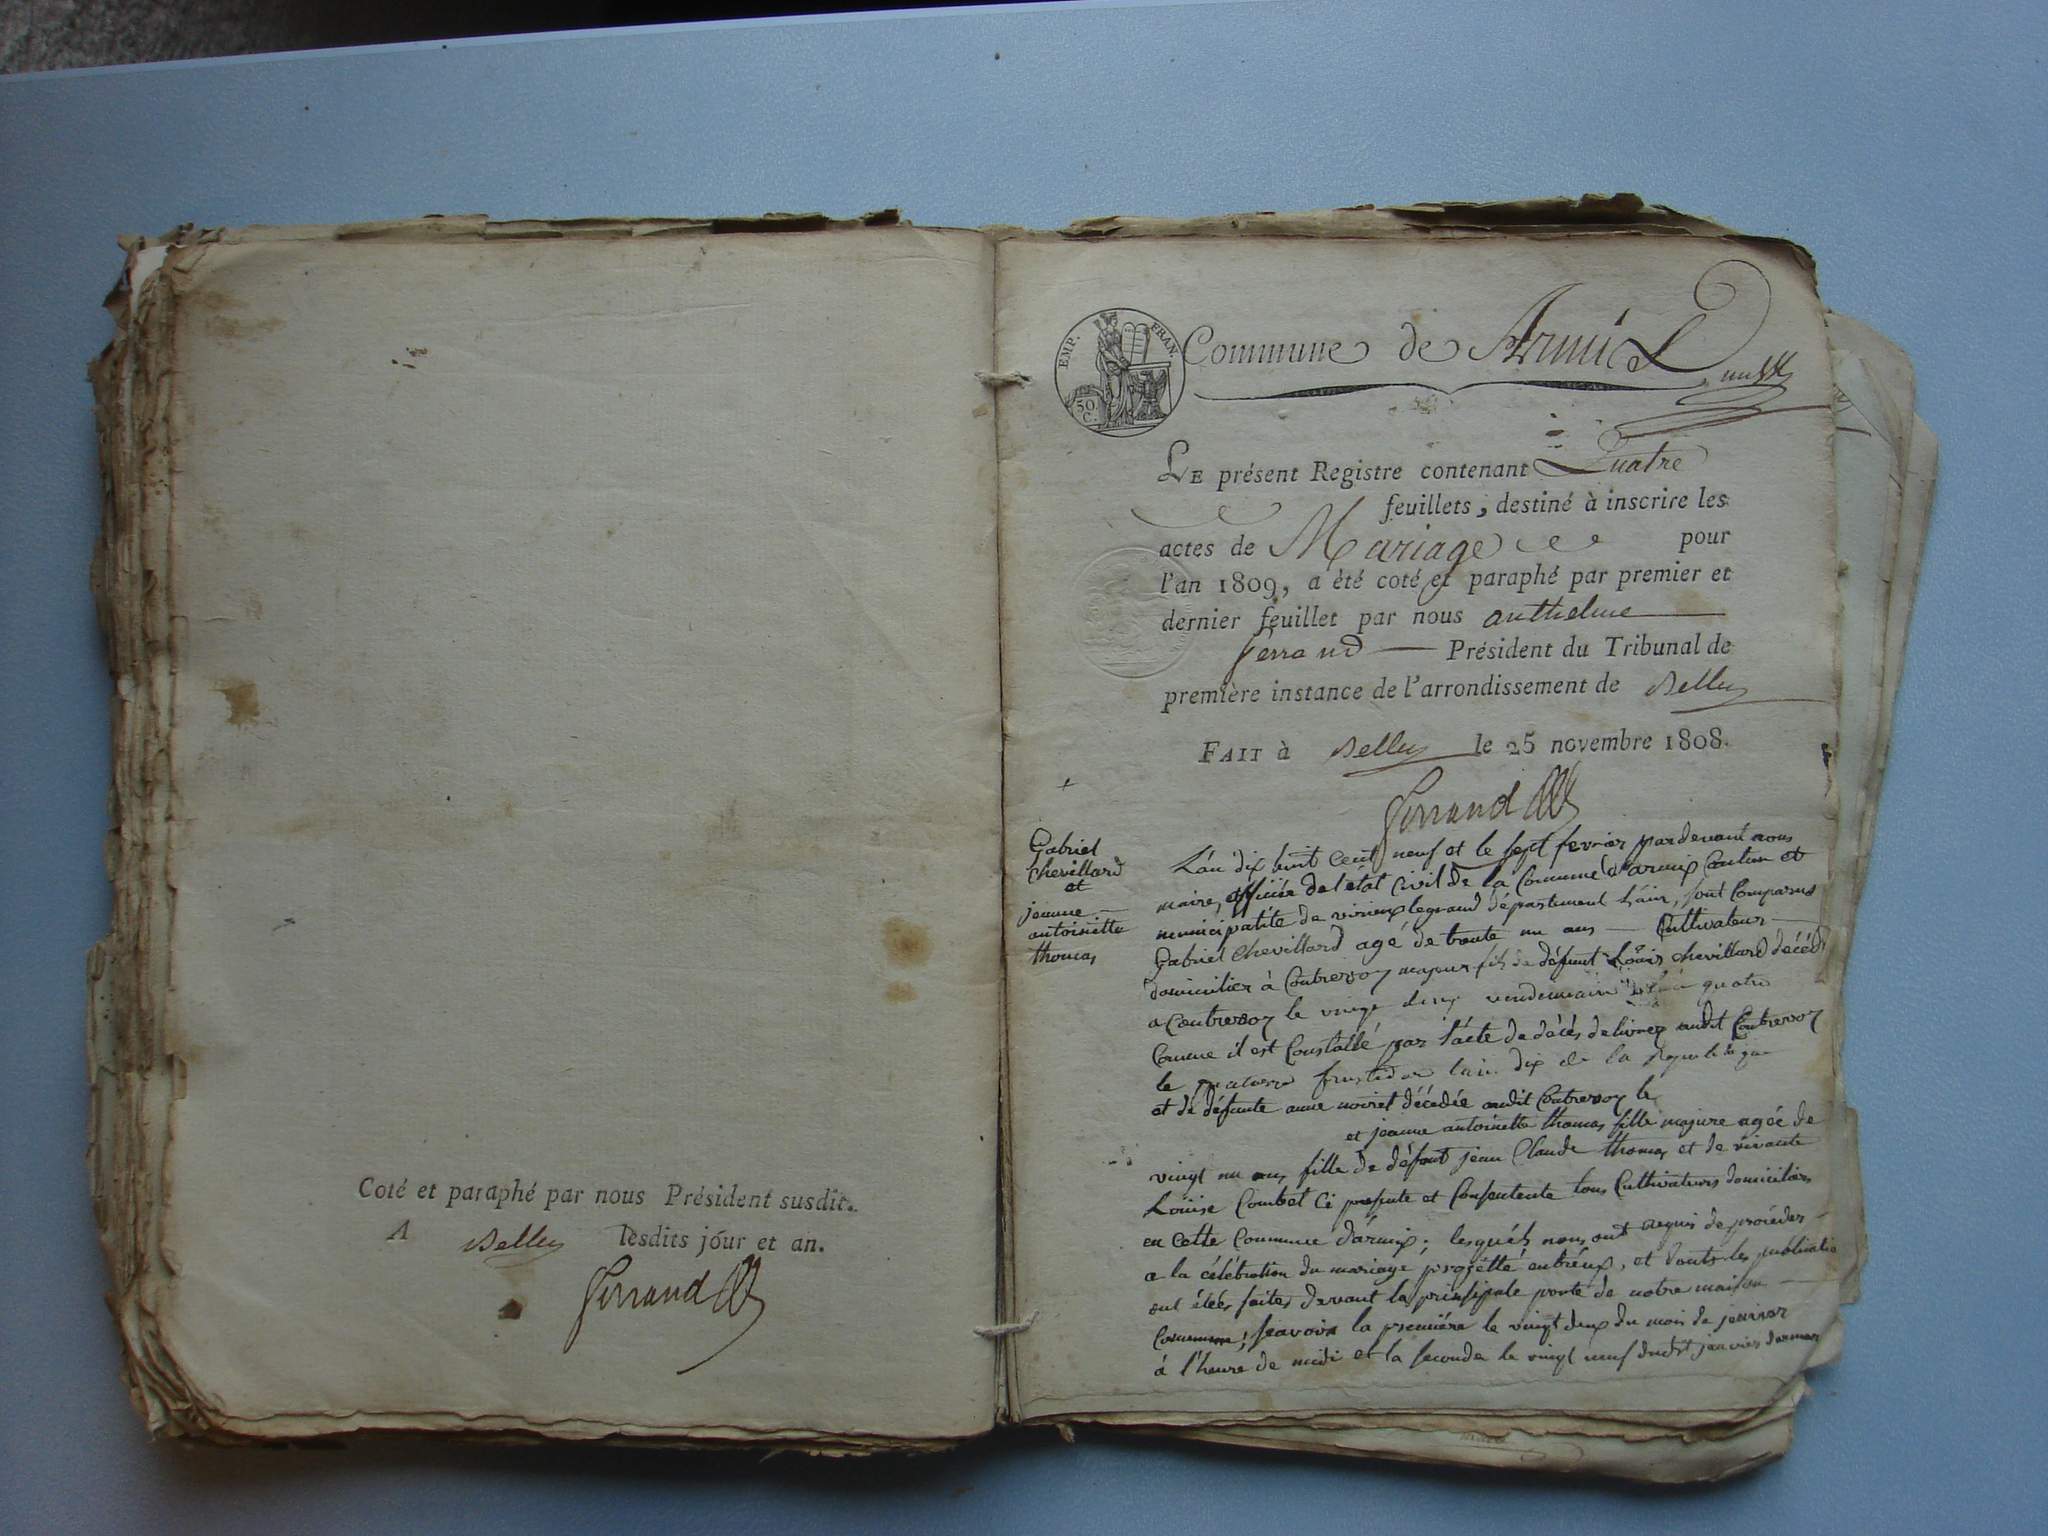 Coté et paraphé par nous Président susdit.
A Belley lesdits jour et an.
Ferrand
EMP. FRAN.
50 C.
Commune de Armix
LE présent Registre contenant Quatre
feuillets, destiné à inscrire les
actes de Mariage pour
l'an 1809, a été coté et paraphé par premier et
dernier feuillet par nous anthelme
ferrand Président du Tribunal de
première instance de l'arrondissement de Belley
FAIT à Belley le 25 novembre 1808.
Ferrand
Gabriel
Chevillard
et
jeanne
antoinette
thomas
L'an dix huit Cent neuf et le sept fevrier pardevant nous
maire, officier de l'état Civil de la Commune d'armix Canton et
municipalité de virieux legrand département Láin, sont Comparus
Gabriel Chevillard agé de trante un ans Cultivateur
domicilier à Contrevoz majeur fils de défunt Loüis Chevillard décédé
a Contrevoz le vingt deux vendemiaire quatre
Comme il est Constatté par l'acte de décés delivrez audit Contrevoz
le l'an dix de la Republique
et de défunte anne décédée audit Contrevoz le
et jeanne antoinette thomas fille majure agée de
vingt un ans fille de défunt jean Claude thomas et de vivante
Loüise Combet Ci présente et Consentente tous Cultivateurs domiciliés
en Cette Commune d'ármix; lesquéls nous ont requis de proiéder
a la célébration du mariage projetté entréux, et dont les publicatio
ont étéés faites devant la prinsipale porte de notre maison
Commune; scavoir la premiére le vingt deux du mois de jenvier
à l'heure de midi et la seconde le vingt neuf dudit janvier dernier